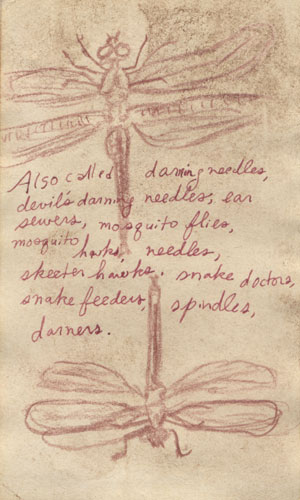 Also called darning needles,
devil's darning needles, ear
sewers, mosquito flies,
mosquito hawks, needles,
skeeter hawks. snake doctors,
snake feeders, spindles,
darners.